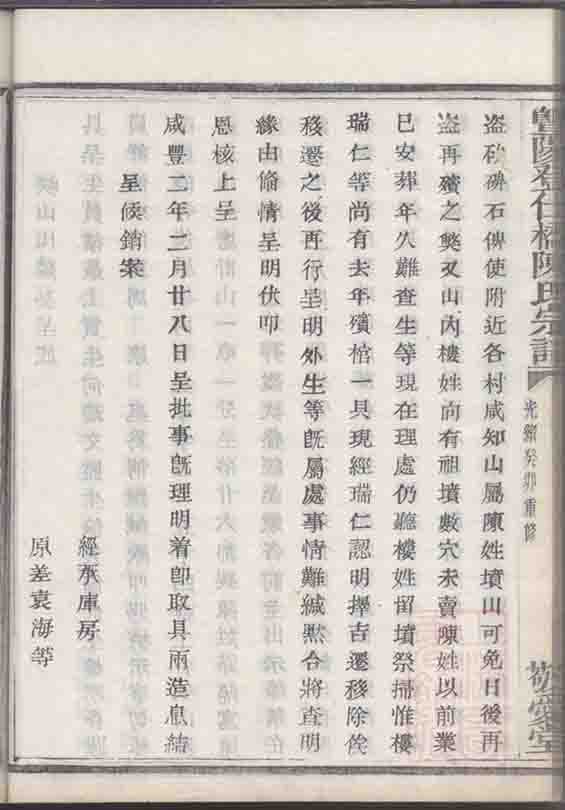 暨陽登仕橋陳氏宗譜
光緒癸卯重修
敬愛堂
盗砍碑石傳使附近各村咸知山屬陳姓墳山可免日後再
盗再殯之獘又山內樓姓向有祖墳數穴未賣陳姓以前業
已安葬年久難查生等現在理處仍聽樓姓留墳祭掃惟樓
瑞仁等尚有去年殯棺一具現經瑞仁認明擇吉遷移除俟
移遷之後再行呈明外生等旣屬處事情難緘默合將查明
緣由偹情呈明伏叩
恩核上呈
咸豐二年二月廿八日呈批事旣理明着卽取具兩造息結
呈候銷案
經承庫房
原差袁海等